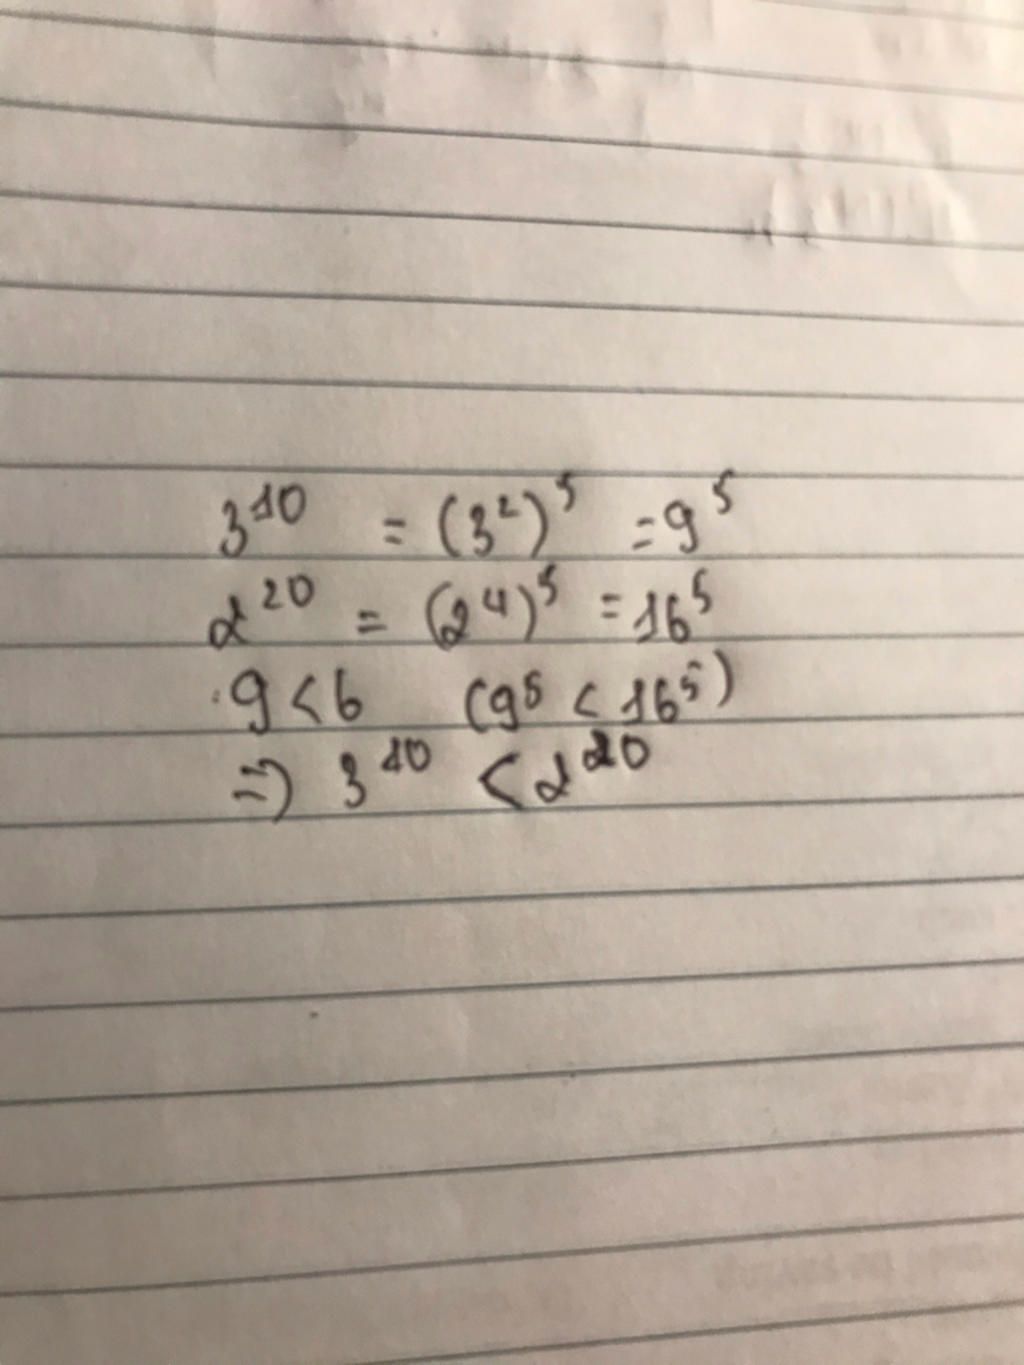 3^10 = (3^2)^5 = 9^5
2^20 = (2^4)^5 = 16^5
9 < 6 (9^5 < 16^5)
=> 3^10 < 2^20